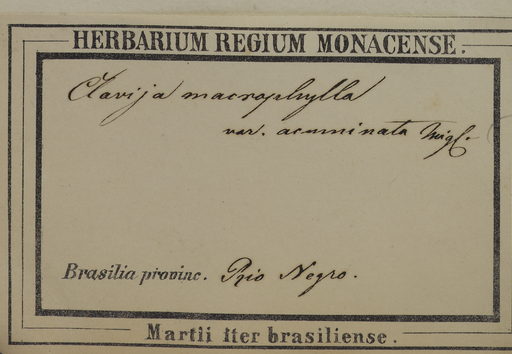 HERBARIUM REGIUM MONACENSE.
Clavija macrophylla
var. acuminata Miq.
Brasilia provinc. Rio Negro.
Martii iter brasiliense.